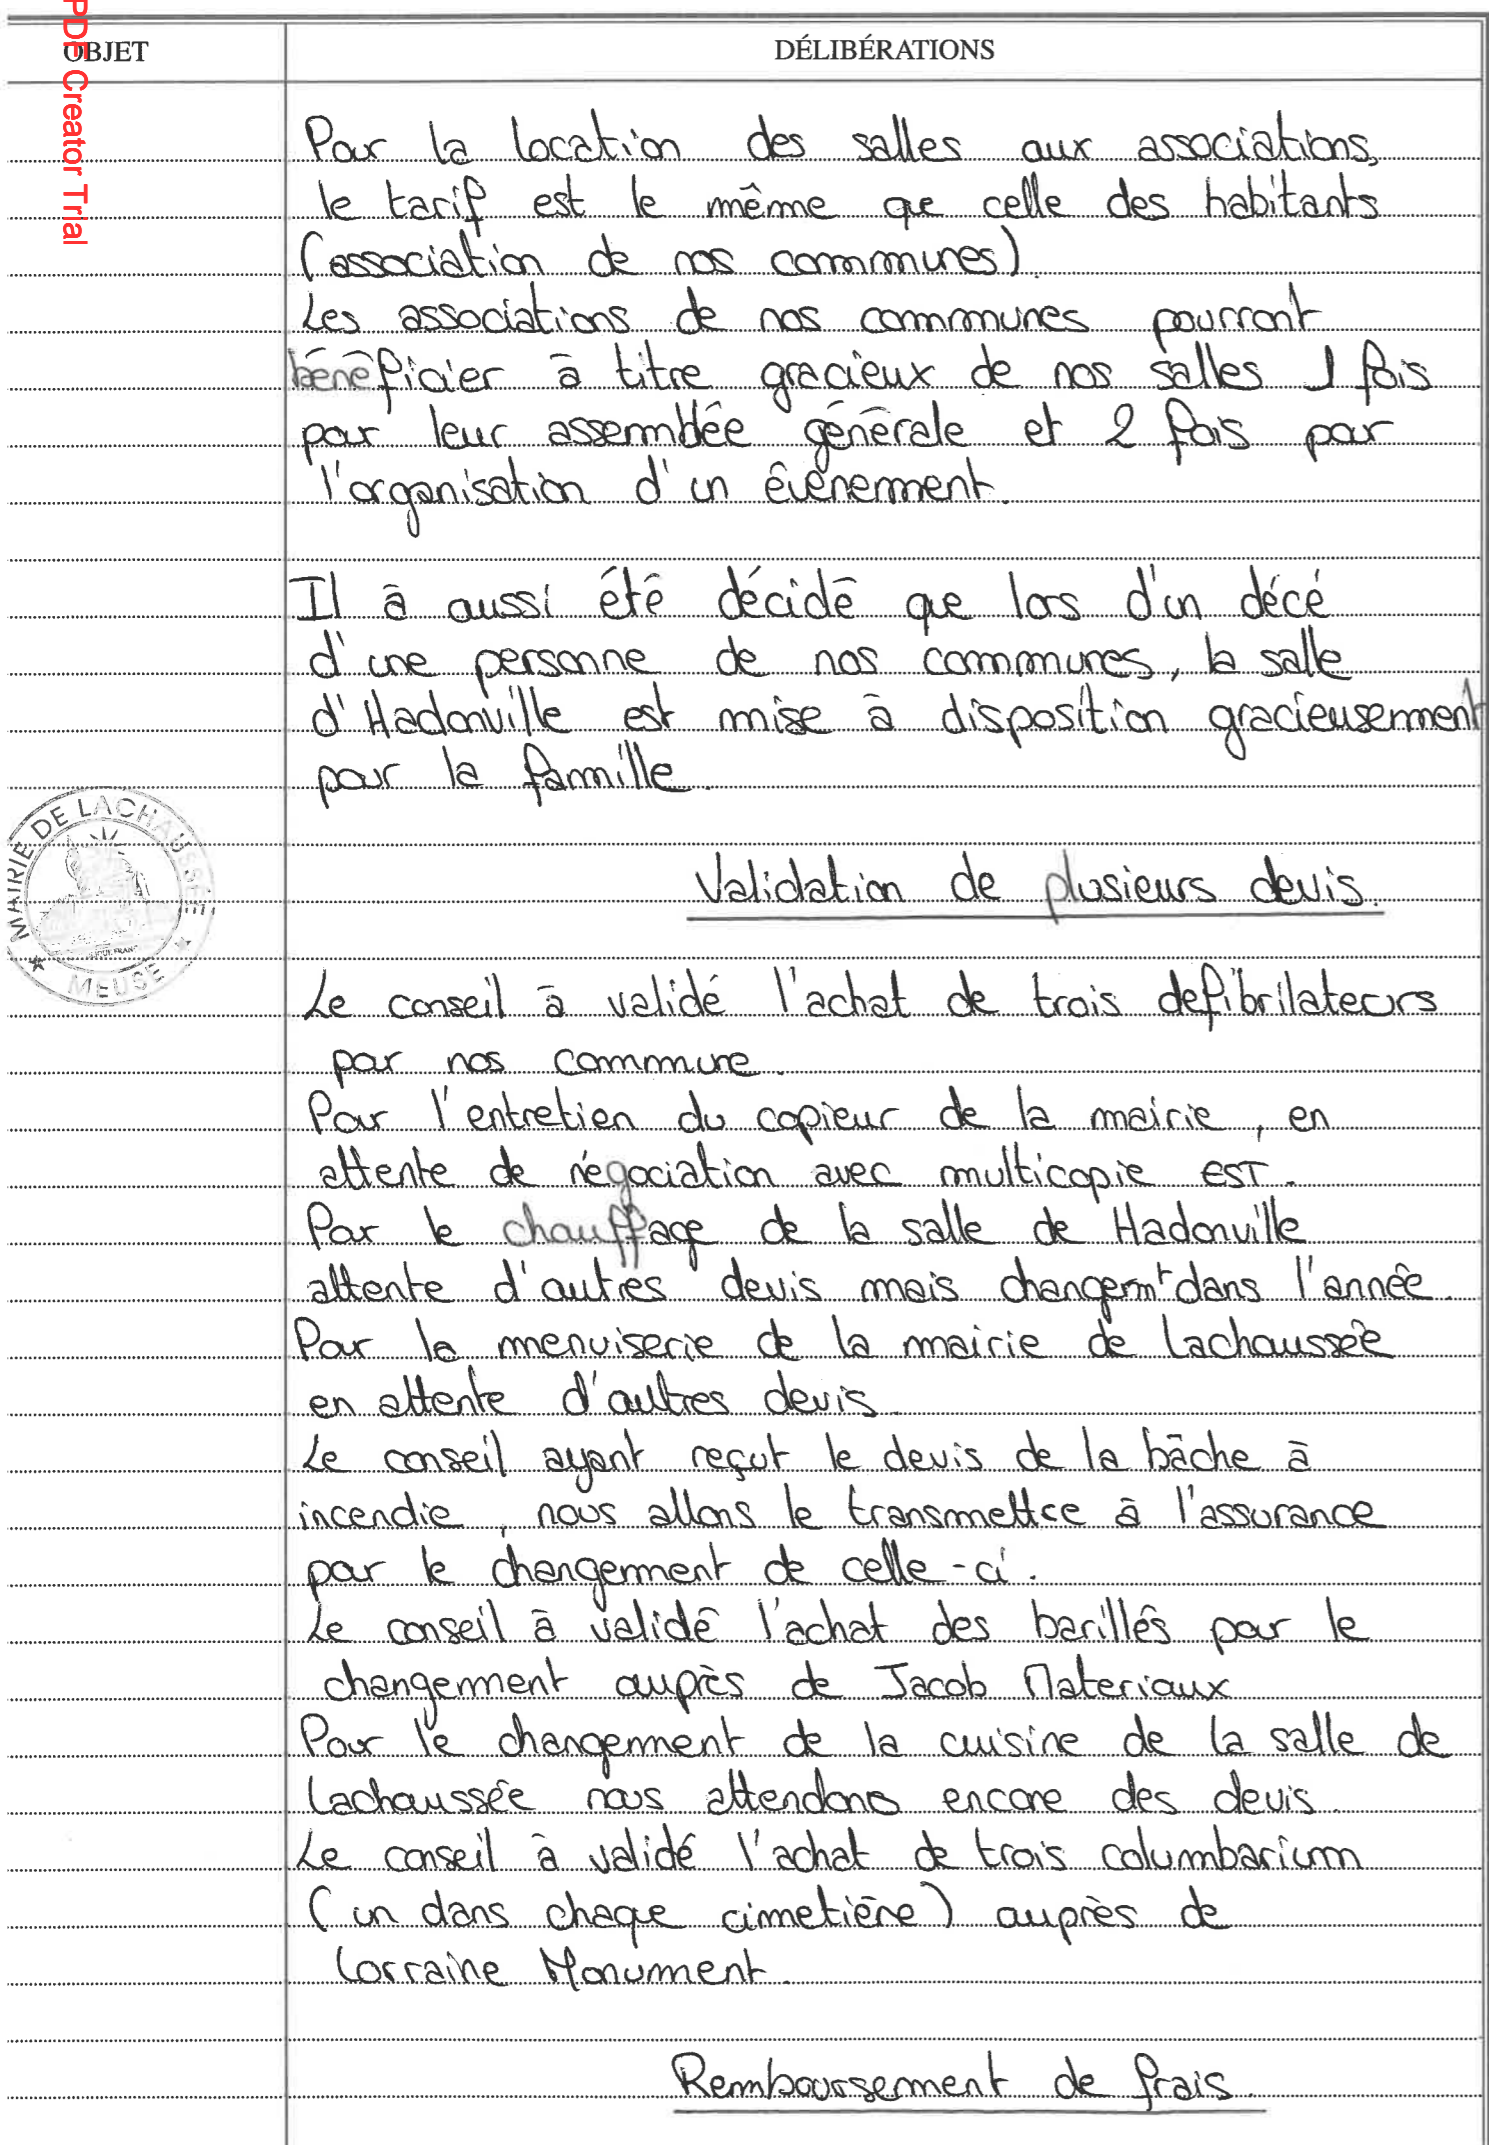 PDF Creator Trial
OBJET
DÉLIBÉRATIONS
Pour la location des salles aux associations,
le tarif est le même que celle des habitants
(association de nos communes).
Les associations de nos communes pourront
bénéficier à titre gracieux de nos salles 1 fois
pour leur assemblée générale et 2 fois pour
l'organisation d'un évènement.
Il à aussi été décidé que lors d'un décé
d'une personne de nos communes, la salle
d'Hadonville est mise à disposition gracieusement
pour la famille.
MAIRIE DE LACHAUSSÉE
MEUSE
Validation de plusieurs devis.
Le conseil à validé l'achat de trois defibrilateurs
pour nos commune.
Pour l'entretien du copieur de la mairie, en
attente de négociation avec multicopie EST.
Pour le chauffage de la salle de Hadonville
attente d'autres devis mais changemt dans l'année.
Pour la menuiserie de la mairie de Lachaussée
en attente d'autres devis.
Le conseil ayant reçut le devis de la bâche à
incendie, nous allons le transmettre à l'assurance
pour le changement de celle-ci.
Le conseil à validé l'achat des barillés pour le
changement auprès de Jacob Materiaux
Pour le changement de la cuisine de la salle de
Lachaussée nous attendons encore des devis.
Le conseil à validé l'achat de trois columbarium
(un dans chaque cimetière) auprès de
Lorraine Monument.
Remboursement de frais.